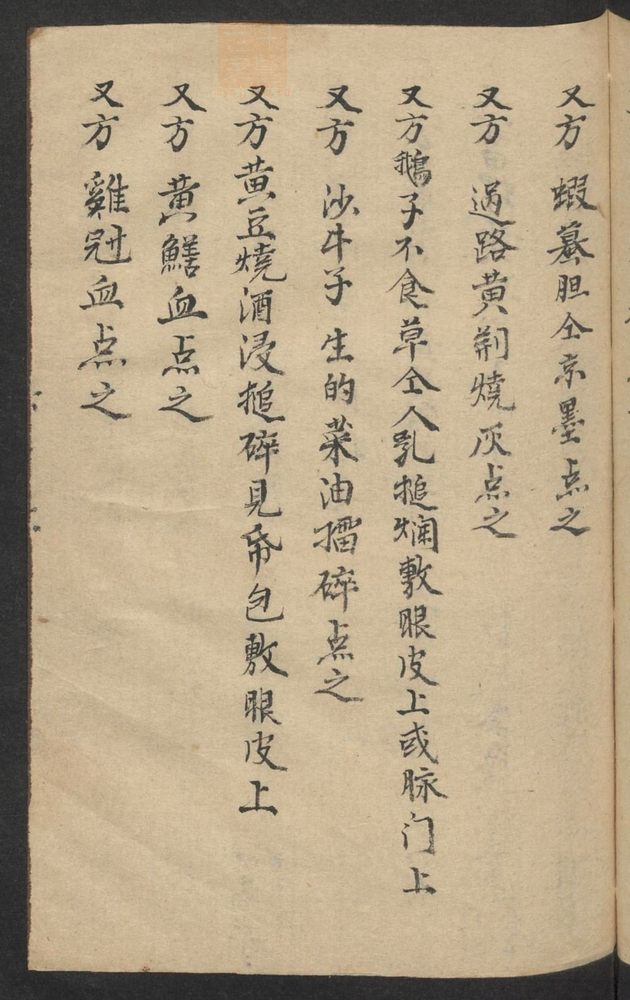 又方 蝦蟇胆仝京墨点之
又方 過路黄荆燒灰点之
又方鵝子不食草仝人乳搥爛敷眼皮上或脉门上
又方 沙牛子 生的菜油擂碎点之
又方黄豆燒酒浸搥碎見帋包敷眼皮上
又方 黄鱔血点之
又方 雞冠血点之